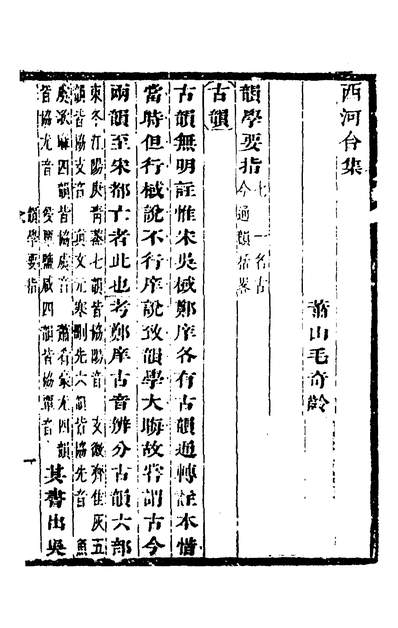 西河合集
蕭山毛奇齡
韻學要指
七 一名古
今通韻括畧
古韻
古韻無明註惟宋吳棫鄭庠各有古韻通轉註本惜
當時但行棫說不行庠說致韻學大晦故嘗謂古今
兩韻至宋都亡者此也考鄭庠古音辨分古韻六部
東冬江陽庚青蒸七韻皆協陽音 支微齊佳灰五
韻皆協支音 眞文元寒刪先六韻皆協先音 魚
虞歌麻四韻皆協虞音 蕭肴豪尤四韻
皆協尤音 侵覃鹽咸四韻皆協覃音
其書出吳
韻學要指